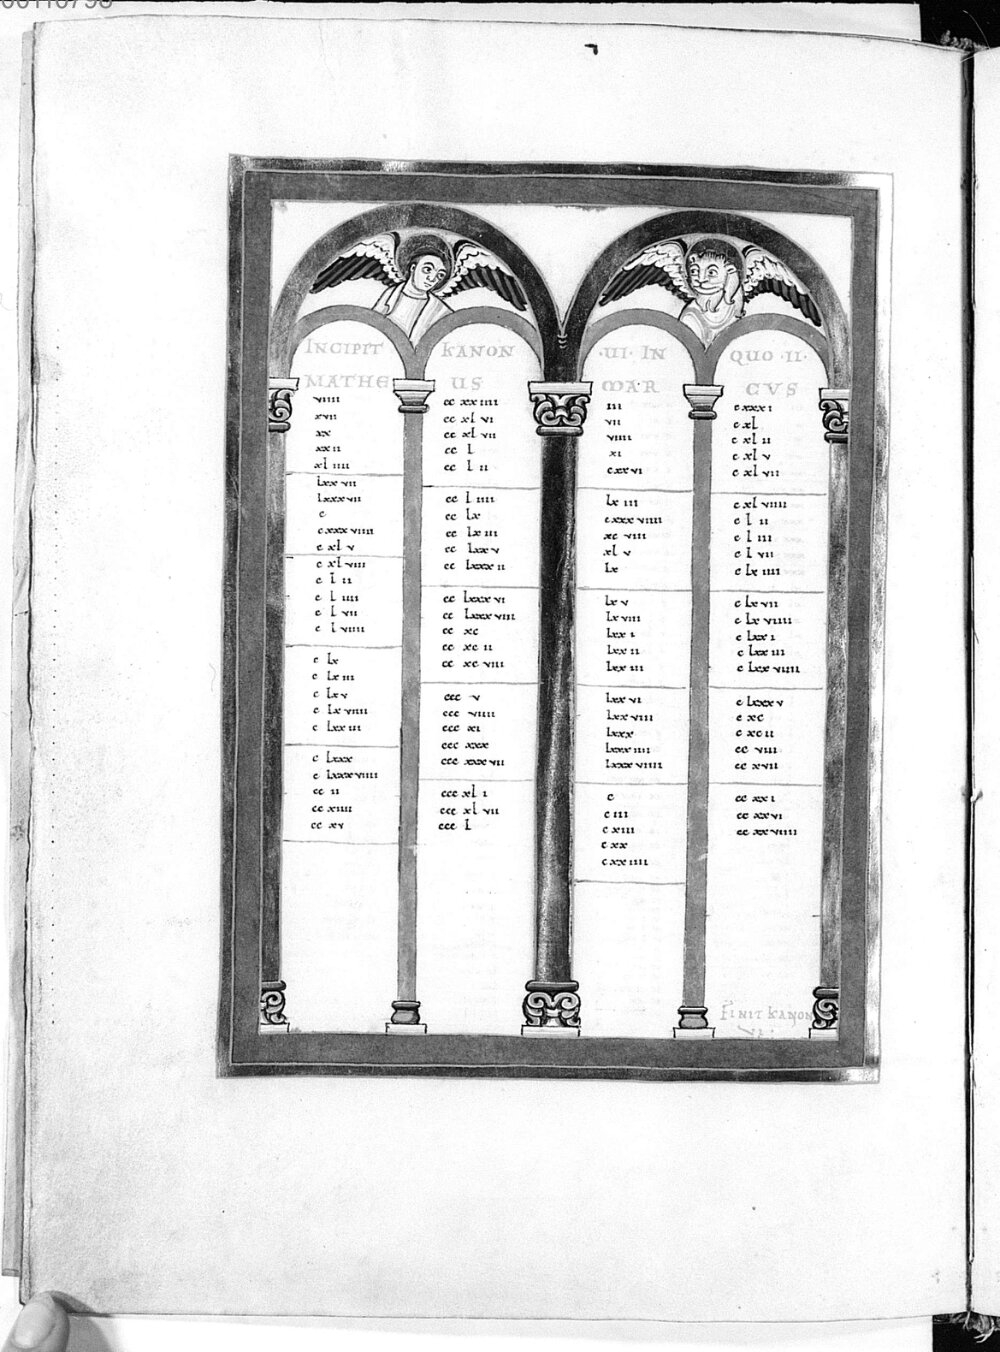 INCIPIT KANON ·UI· IN QUO ·II·
MATHE US MAR CVS
viiii
xvii
xx
xxii
xl iiii
lxx vii
lxxx vii
c
cxxx viiii
c xl v
c xl viii
c l ii
c l iiii
c l vii
c l viiii
c lx
c lx iii
c lx v
c lx viiii
c lxx iii
c lxxx
c lxxx viiii
cc ii
cc xiiii
cc xv
cc xx iiii
cc xl vi
cc xl vii
cc l
cc l ii
cc l iiii
cc lx
cc lx iii
cc lxx v
cc lxxx ii
cc lxxx vi
cc lxxx viii
cc xc
cc xc ii
cc xc viii
ccc v
ccc viiii
ccc xi
ccc xxx
ccc xxx vii
ccc xl i
ccc xl vii
ccc l
iii
vii
viiii
xi
cxx vi
lx iii
cxxx viiii
xc viii
xl v
lx
lx v
lx viii
lxx i
lxx ii
lxx iii
lxx vi
lxx viii
lxxx
lxxx iiii
lxxx viiii
c
c iii
c xiii
c xx
c xx iiii
cxxx i
c xl
c xl ii
c xl v
c xl vii
cxl viiii
c l ii
c l iii
c l vii
c lx iiii
c lx vii
c lx viiii
c lxx i
c lxx iii
c lxx viiii
c lxxx v
c xc
c xc ii
cc viii
cc xvii
cc xx i
cc xx vi
cc xx viiii
FINIT KANON
VI·